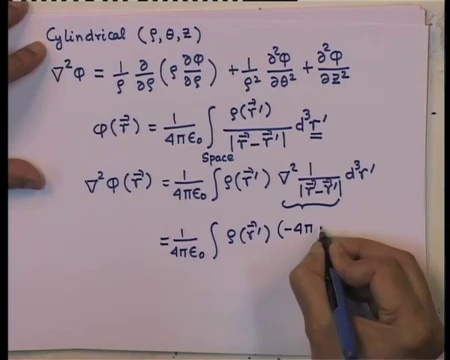 Cylindrical (ρ, θ, z)
∇²φ = 1/ρ ∂/∂ρ (ρ ∂φ/∂ρ) + 1/ρ² ∂²φ/∂θ² + ∂²φ/∂z²
φ(r⃗) = 1/4πε₀ ∫ ρ(r⃗′)/|r⃗−r⃗′| d³r′
Space
∇²φ(r⃗) = 1/4πε₀ ∫ ρ(r⃗′) ∇² 1/|r⃗−r⃗′| d³r′
= 1/4πε₀ ∫ ρ(r⃗′) (−4π